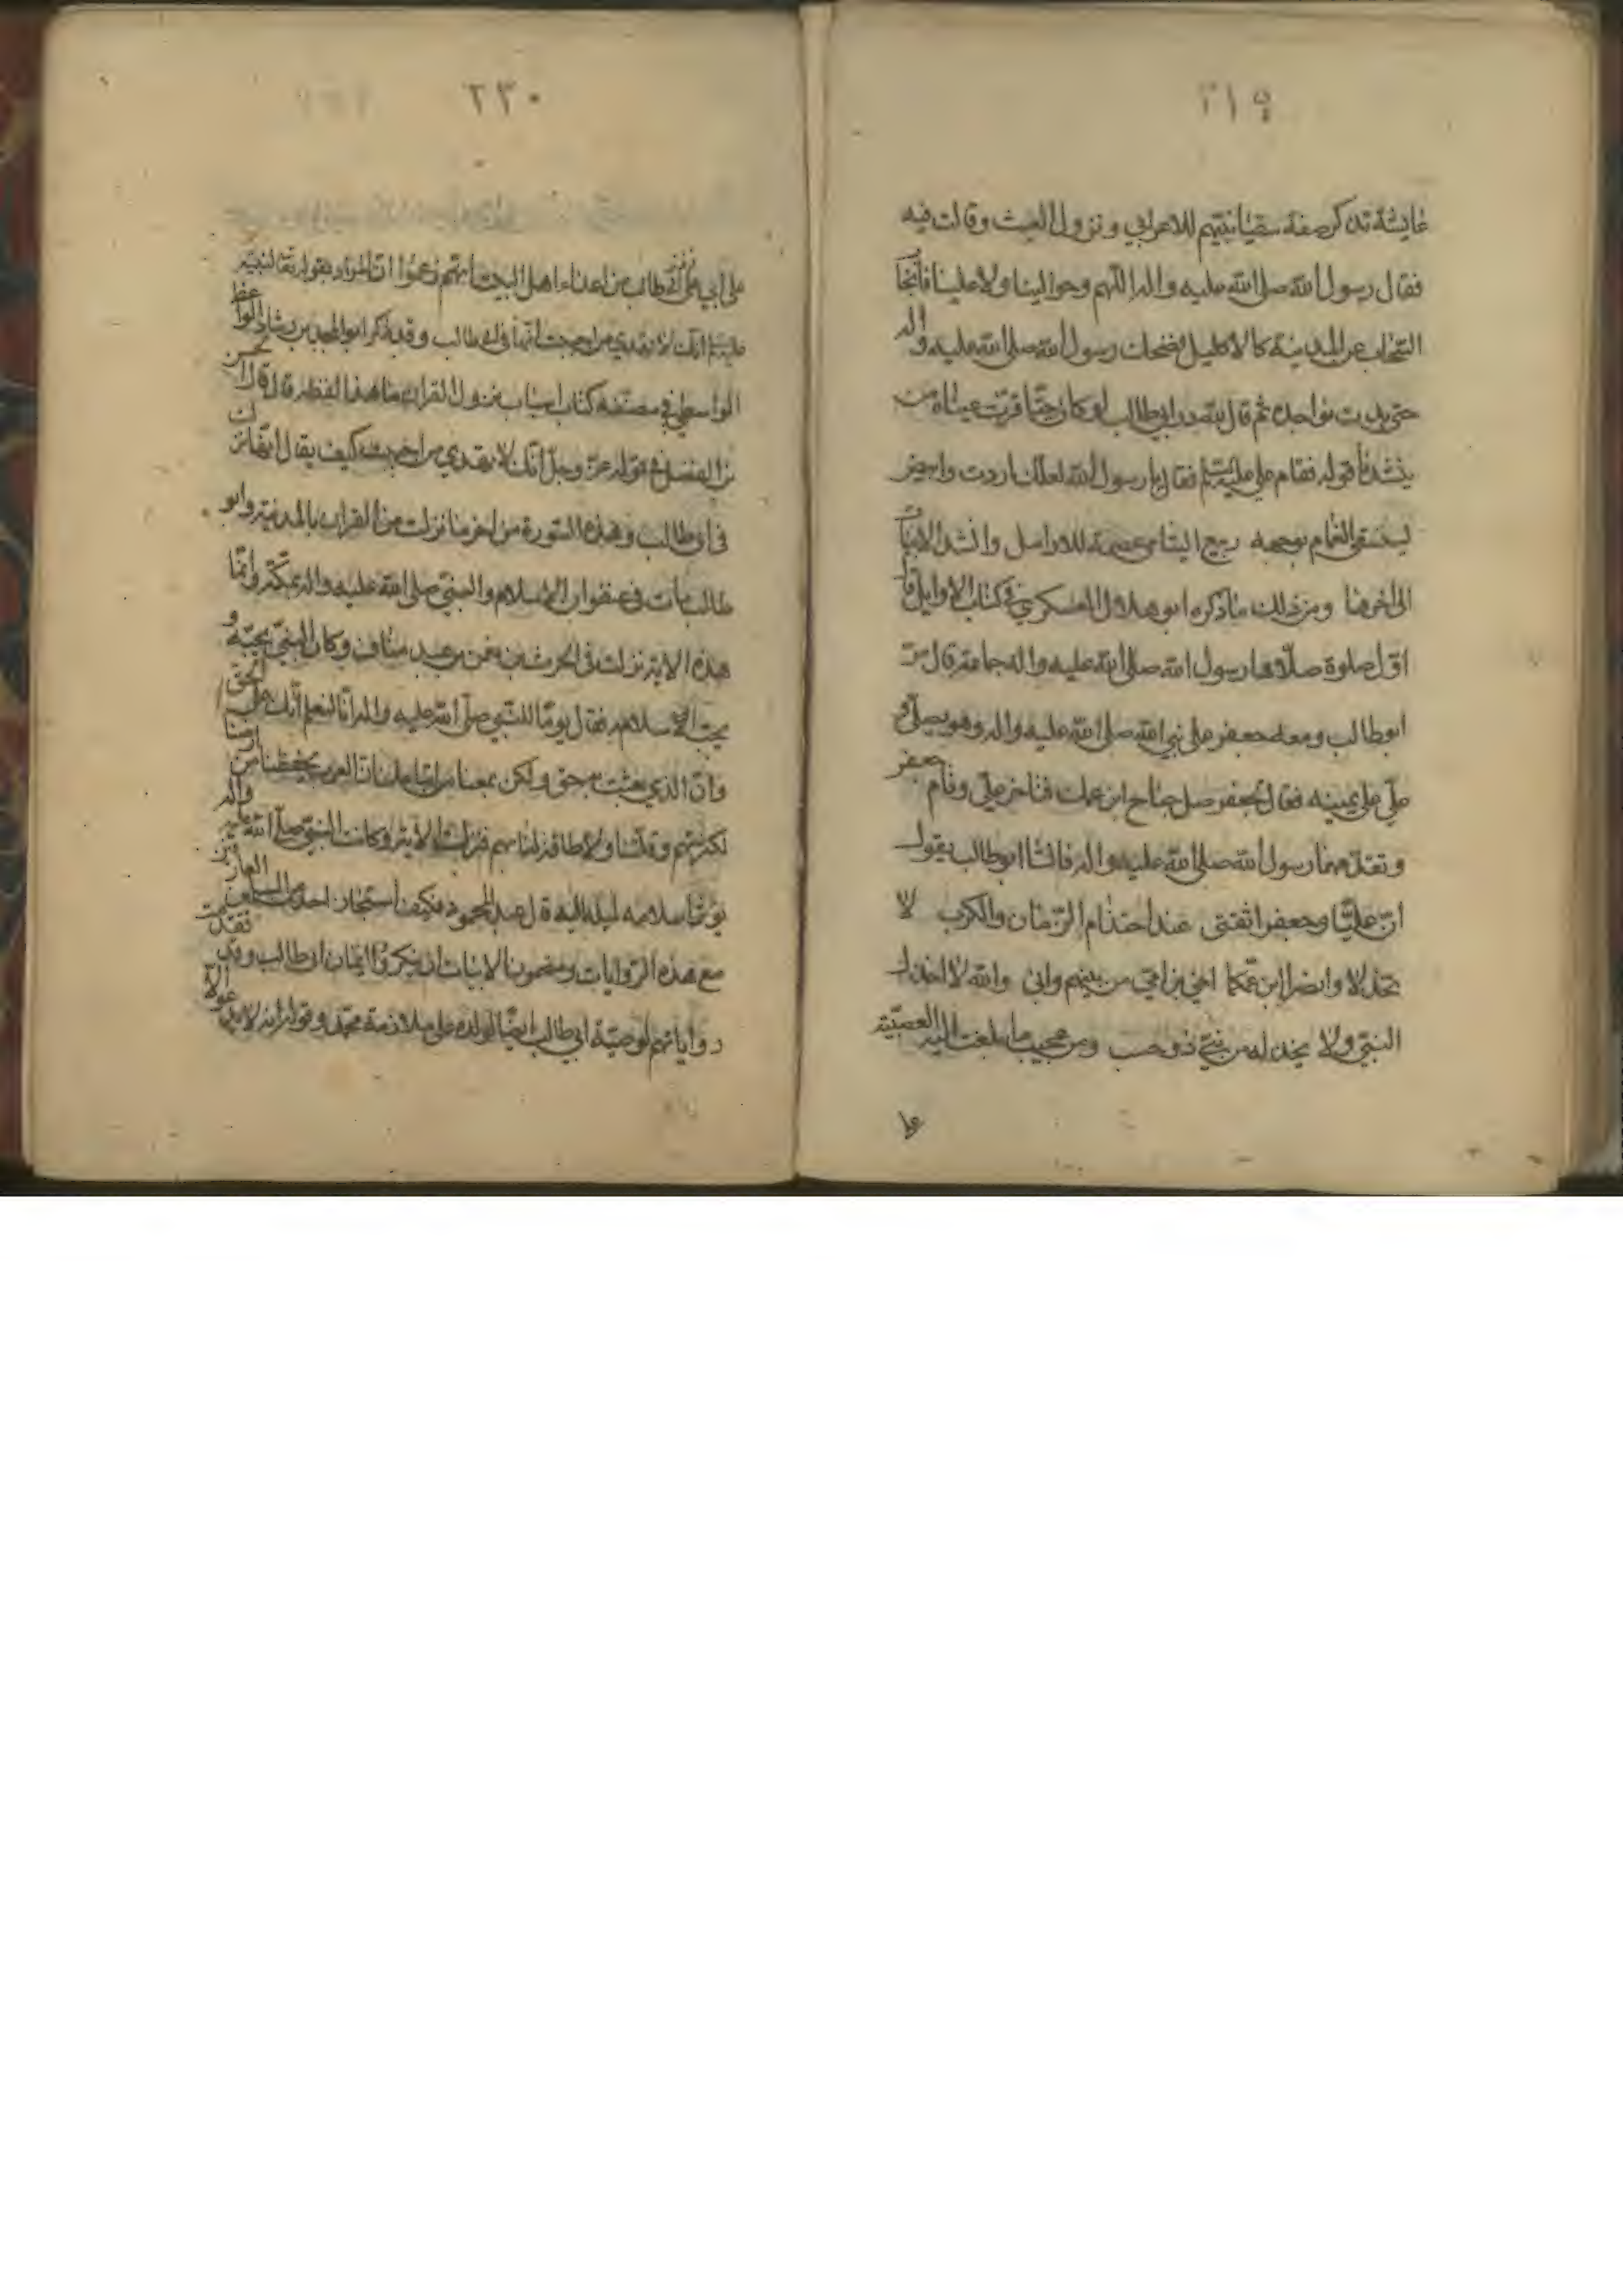 ٢١٩
عايشة تذكر صفة سقيا نبيهم للاعرابي ونزول الغيث وقالت فيه
فقال رسول الله صلى الله عليه واله اللهم وحوالينا ولا علينا فانجا
السحاب عن المدينة كالاكليل فضحك رسول الله صلى الله عليه واله
حتى بدت نواجده ثم قال لله در ابي طالب لو كان حيا قرت عيناه من
ينشدنا قوله فقام علي عليه السلم فقال يا رسول الله لعلك اردت وابيض
يستسقى الغمام بوجهه ربيع اليتامى عصمة للارامل وانشد الابيات
الى اخرها ومن ذلك ما ذكره ابو هلال العسكري في كتاب الاوايل قال
اول صلوة صلاها رسول الله صلى الله عليه واله جماعة قال مر
ابو طالب ومعه جعفر على نبي الله صلى الله عليه واله وهو يصلي و
علي على يمينه فقال لجعفر صل جناح ابن عمك فتاخر علي وقام جعفر
وتقدمهما رسول الله صلى الله عليه واله فانشا ابو طالب يقول
ان عليا وجعفرا ثقتي عند احتدام الزمان والكرب لا
تخذلا وانصرا ابن عمكما اخي من امي من بينهم وابي والله لا اخذل
النبي ولا يخذله من بني ذو حسب ومن عجيب ما بلغت اليه العصبية
على
٢٣٠
على ابي طالب من اعداء اهل البيت انهم زعموا ان المراد بقوله تعالى لنبيه
عليه السلم انك لا تهدي من احببت انها في ابي طالب وقد ذكر ابو المجد بن رشادة الواعظ
الواسطي في مصنفه كتاب اسباب نزول القران ما هذا لفظه قال قال الحسن
بن الفضل في قوله عز وجل انك لا تهدي من احببت كيف يقال انها نزلت
في ابي طالب وهذه السورة من اخر ما نزلت من القران بالمدينة وابو
طالب مات في عنفوان الاسلام والنبي صلى الله عليه واله بمكة وانما
هذه الاية نزلت في الحرث بن نعمن بن عبد مناف وكان النبي يحبه و
يحب الاسلامه فقال يوما للنبي صلى الله عليه واله انا لنعلم انك على الحق
وان الذي جئت به حق ولكن يمنعنا من اتباعك ان العرب تخطفنا من ارضنا
لكثرتهم وقلتنا ولا طاقة لنا بهم فنزلت الاية وكانت النبي صلى الله عليه واله
يؤثر اسلامه لميله اليه قال عبد المحمود فكيف استجاز احد من المسلمين العارفين
مع هذه الروايات ومضمون الابيات ان ينكروا ايمان ابي طالب وقد تقدمت
رواياتهم لوصية ابي طالب ايضا لولده على ملازمة محمد وقوله انه لا يدعوا الا